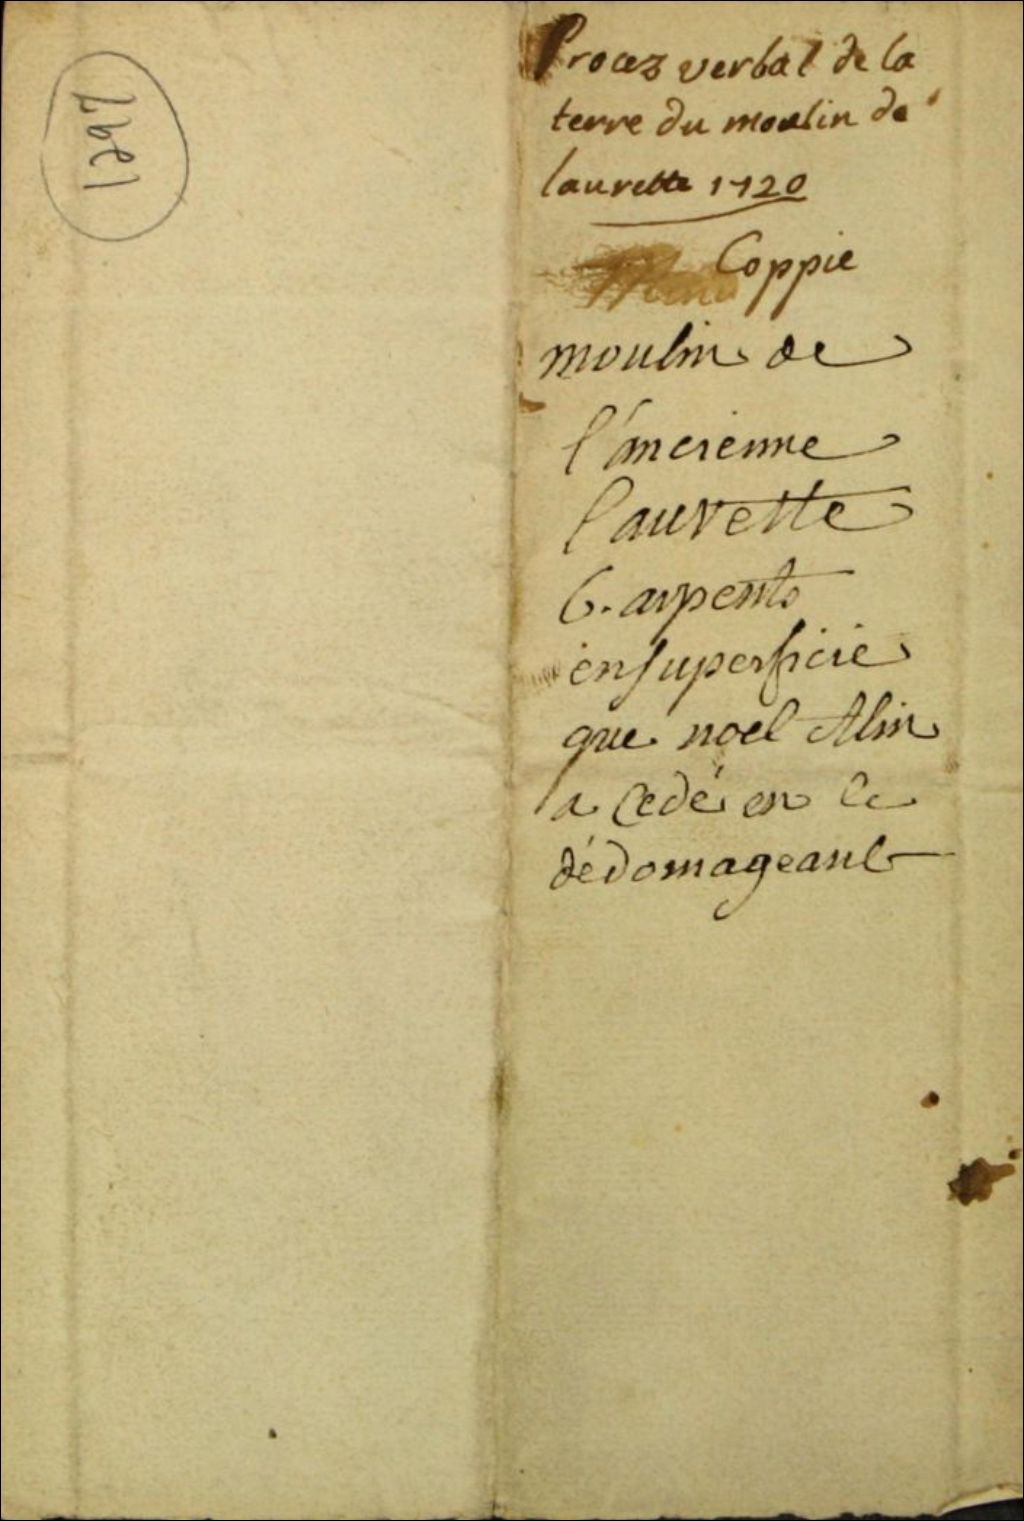 1297
Procez verbal de la
terre du moulin de
laurette 1720
Coppie
moulin de
l'ancienne
laurette
6. arpents
en superficie
que noel Alin
a cedé en le
dédomageant